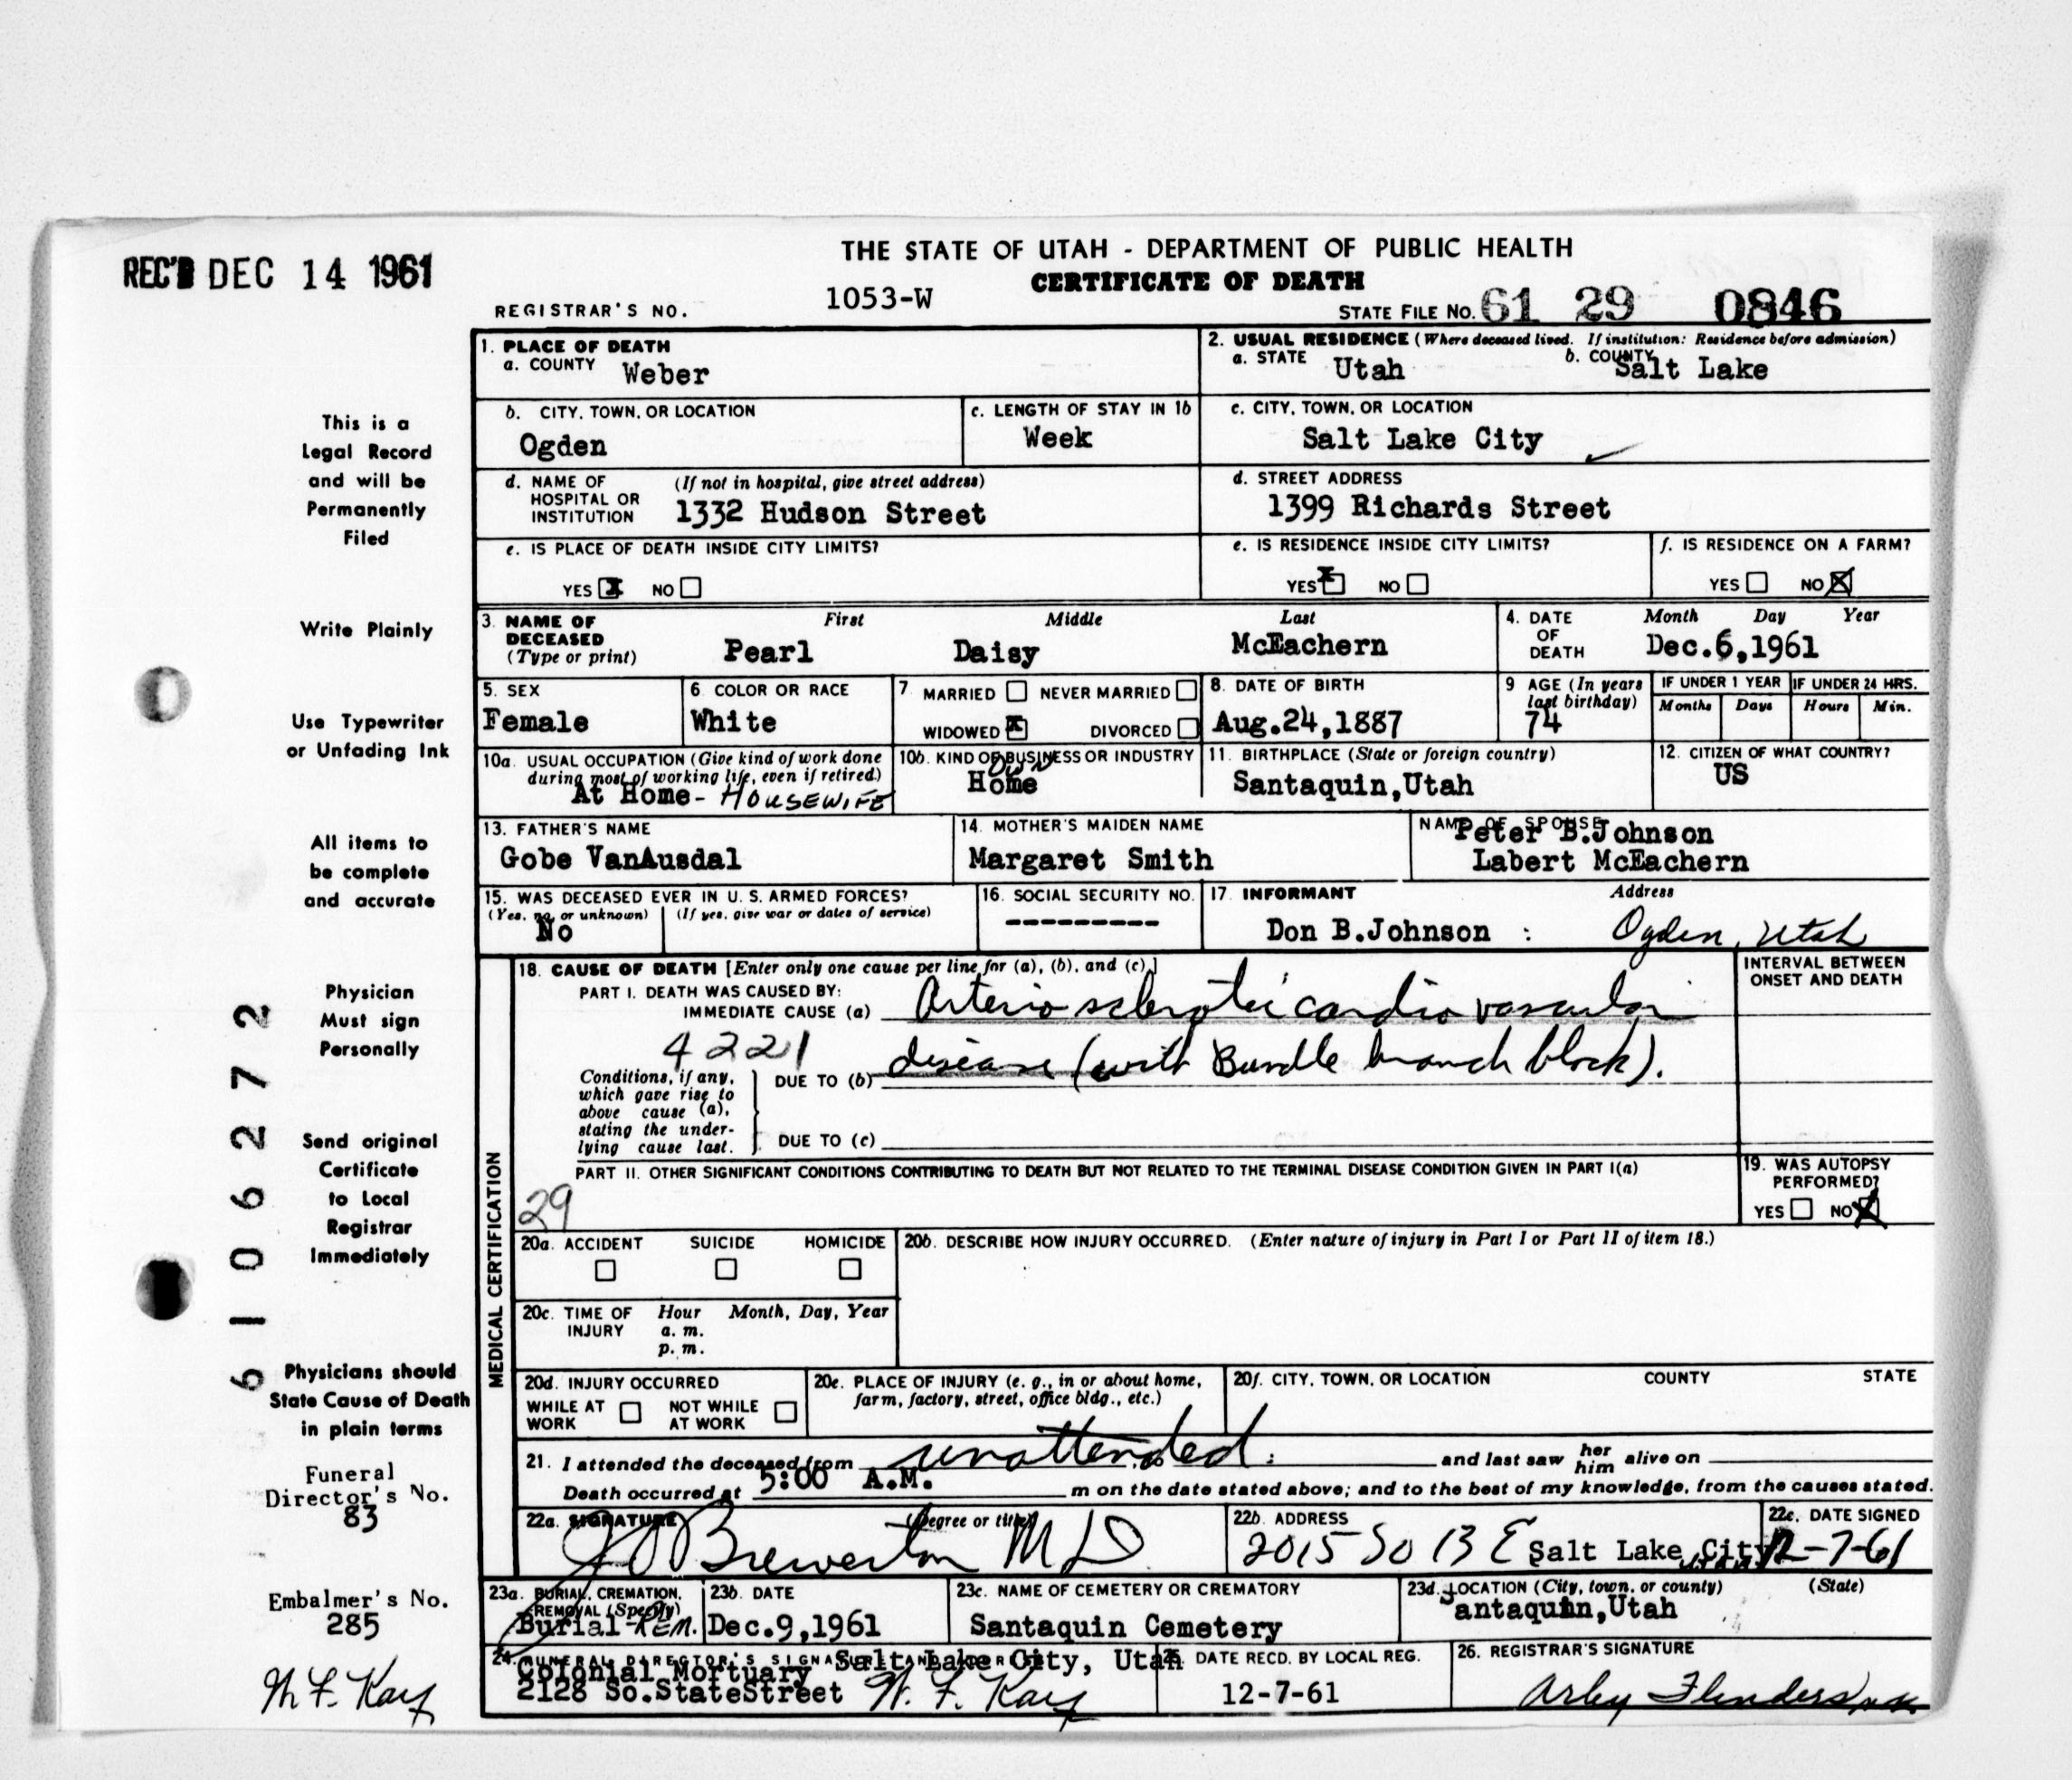 THE STATE OF UTAH - DEPARTMENT OF PUBLIC HEALTH
REC'D DEC 14 1961
CERTIFICATE OF DEATH
REGISTRAR'S NO. 1053-W STATE FILE NO. 61 29 0846
1. PLACE OF DEATH
a. COUNTY Weber
2. USUAL RESIDENCE (Where deceased lived. If institution: Residence before admission)
a. STATE Utah b. COUNTY Salt Lake
b. CITY, TOWN, OR LOCATION
Ogden
c. LENGTH OF STAY IN 1b
Week
c. CITY, TOWN, OR LOCATION
Salt Lake City
d. NAME OF HOSPITAL OR INSTITUTION (If not in hospital, give street address)
1332 Hudson Street
d. STREET ADDRESS
1399 Richards Street
e. IS PLACE OF DEATH INSIDE CITY LIMITS?
YES X NO
e. IS RESIDENCE INSIDE CITY LIMITS?
YES X NO
f. IS RESIDENCE ON A FARM?
YES NO X
3. NAME OF DECEASED (Type or print)
First Middle Last
Pearl Daisy McEachern
4. DATE OF DEATH
Month Day Year
Dec.6,1961
5. SEX
Female
6. COLOR OR RACE
White
7. MARRIED NEVER MARRIED
WIDOWED X DIVORCED
8. DATE OF BIRTH
Aug.24,1887
9 AGE (In years last birthday)
74
IF UNDER 1 YEAR IF UNDER 24 HRS.
Months Days Hours Min.
10a. USUAL OCCUPATION (Give kind of work done during most of working life, even if retired.)
At Home - HOUSEWIFE
10b. KIND OF BUSINESS OR INDUSTRY
Own
Home
11. BIRTHPLACE (State or foreign country)
Santaquin,Utah
12. CITIZEN OF WHAT COUNTRY?
US
13. FATHER'S NAME
Gobe VanAusdal
14. MOTHER'S MAIDEN NAME
Margaret Smith
NAME OF SPOUSE
Peter B.Johnson
Labert McEachern
15. WAS DECEASED EVER IN U. S. ARMED FORCES?
(Yes, no, or unknown) (If yes, give war or dates of service)
No
16. SOCIAL SECURITY NO.
---------
17. INFORMANT Address
Don B.Johnson : Ogden, Utah
MEDICAL CERTIFICATION
18. CAUSE OF DEATH [Enter only one cause per line for (a), (b), and (c).]
PART I. DEATH WAS CAUSED BY:
IMMEDIATE CAUSE (a) Arterio sclerotic cardio vascular
4221
DUE TO (b) disease (with Bundle branch block).
Conditions, if any, which gave rise to above cause (a), stating the underlying cause last.
DUE TO (c)
INTERVAL BETWEEN ONSET AND DEATH
PART II. OTHER SIGNIFICANT CONDITIONS CONTRIBUTING TO DEATH BUT NOT RELATED TO THE TERMINAL DISEASE CONDITION GIVEN IN PART I(a)
29
19. WAS AUTOPSY PERFORMED?
YES NO X
20a. ACCIDENT SUICIDE HOMICIDE
20b. DESCRIBE HOW INJURY OCCURRED. (Enter nature of injury in Part I or Part II of item 18.)
20c. TIME OF INJURY Hour Month, Day, Year
a. m.
p. m.
20d. INJURY OCCURRED
WHILE AT WORK NOT WHILE AT WORK
20e. PLACE OF INJURY (e. g., in or about home, farm, factory, street, office bldg., etc.)
20f. CITY, TOWN, OR LOCATION COUNTY STATE
21. I attended the deceased from unattended. and last saw her him alive on
Death occurred at 5:00 A.M. m on the date stated above; and to the best of my knowledge, from the causes stated.
22a. SIGNATURE (Degree or title)
Brewerton MD
22b. ADDRESS
2015 So 13 E Salt Lake City
22c. DATE SIGNED
12-7-61
23a. BURIAL, CREMATION, REMOVAL (Specify)
Burial - REM.
23b. DATE
Dec.9,1961
23c. NAME OF CEMETERY OR CREMATORY
Santaquin Cemetery
23d. LOCATION (City, town, or county) (State)
Santaquin,Utah
24. FUNERAL DIRECTOR'S SIGNATURE AND ADDRESS
Colonial Mortuary Salt Lake City, Utah
2128 So.StateStreet W. F. Kay
25. DATE RECD. BY LOCAL REG.
12-7-61
26. REGISTRAR'S SIGNATURE
This is a
Legal Record
and will be
Permanently
Filed
Write Plainly
Use Typewriter
or Unfading Ink
All items to
be complete
and accurate
Physician
Must sign
Personally
Send original
Certificate
to Local
Registrar
Immediately
Physicians should
State Cause of Death
in plain terms
Funeral
Director's No.
83
Embalmer's No.
285
6106272